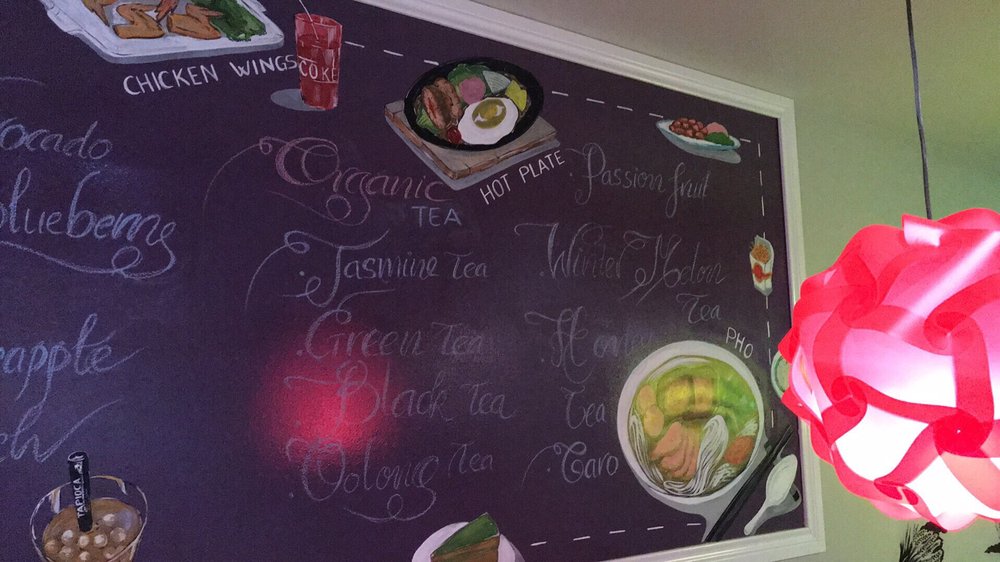 CHICKEN WINGS
COKE
HOT PLATE
PHO
TAPIOCA
blueberry
Organic
TEA
Jasmine Tea
Green Tea
Black Tea
Oolong Tea
Passion fruit
Winter Melon
Tea
Tea
Taro